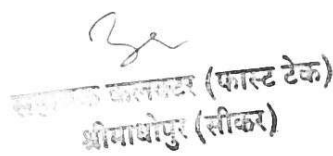 सहायक कलक्टर (फास्ट टेक)
श्रीमाधोपुर (सीकर)